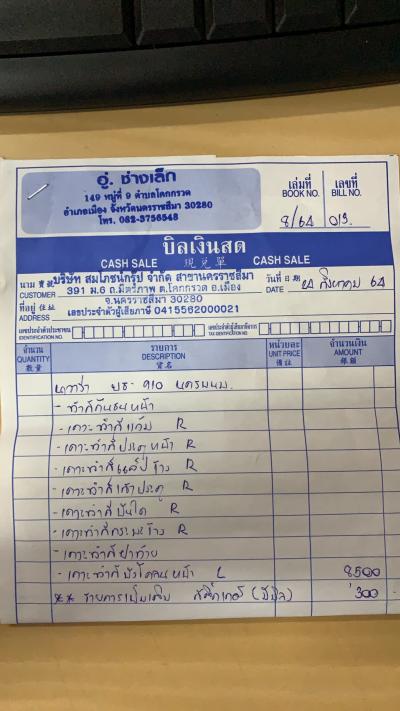 อู่. ช่างเล็ก
149 หมู่ที่ 9 ตำบลโคกกรวด
อำเภอเมือง จังหวัดนครราชสีมา 30280
โทร. 082-3756548
เล่มที่ BOOK NO. 8/64
เลขที่ BILL NO. 013
บิลเงินสด
CASH SALE 現兌單 CASH SALE
นาม CUSTOMER บริษัท สมโภชน์กรุ๊ป จำกัด สาขานครราชสีมา
391 ม.6 ถ.มิตรภาพ ต.โคกกรวด อ.เมือง
จ.นครราชสีมา 30280
ที่อยู่ 住址 ADDRESS เลขประจำตัวผู้เสียภาษี 0415562000021
วันที่ 日期 DATE สิงหาคม 64
เลขประจำตัวประชาชน IDENTIFICATION NO.
เลขประจำตัวผู้เสียภาษีอากร TAX IDENTIFICATION NO.
จำนวน QUANTITY 數量
รายการ DESCRIPTION 貨名
หน่วยละ UNIT PRICE
จำนวนเงิน AMOUNT 銀額
นาวาร่า 910
- ทำสีกันชนหน้า
- เคาะทำสีแก้ม R
- เคาะทำสีประตูหน้า R
- เคาะทำสีแค็ปข้าง R
- เคาะทำสีเสาประตู R
- เคาะทำสีบันได R
- เคาะทำสีกระบะข้าง R
- เคาะทำสีฝาท้าย
- เคาะทำสีบังโคลนหน้า L 8500
** รายการเพิ่มเติม สติ๊กเกอร์ 300 -